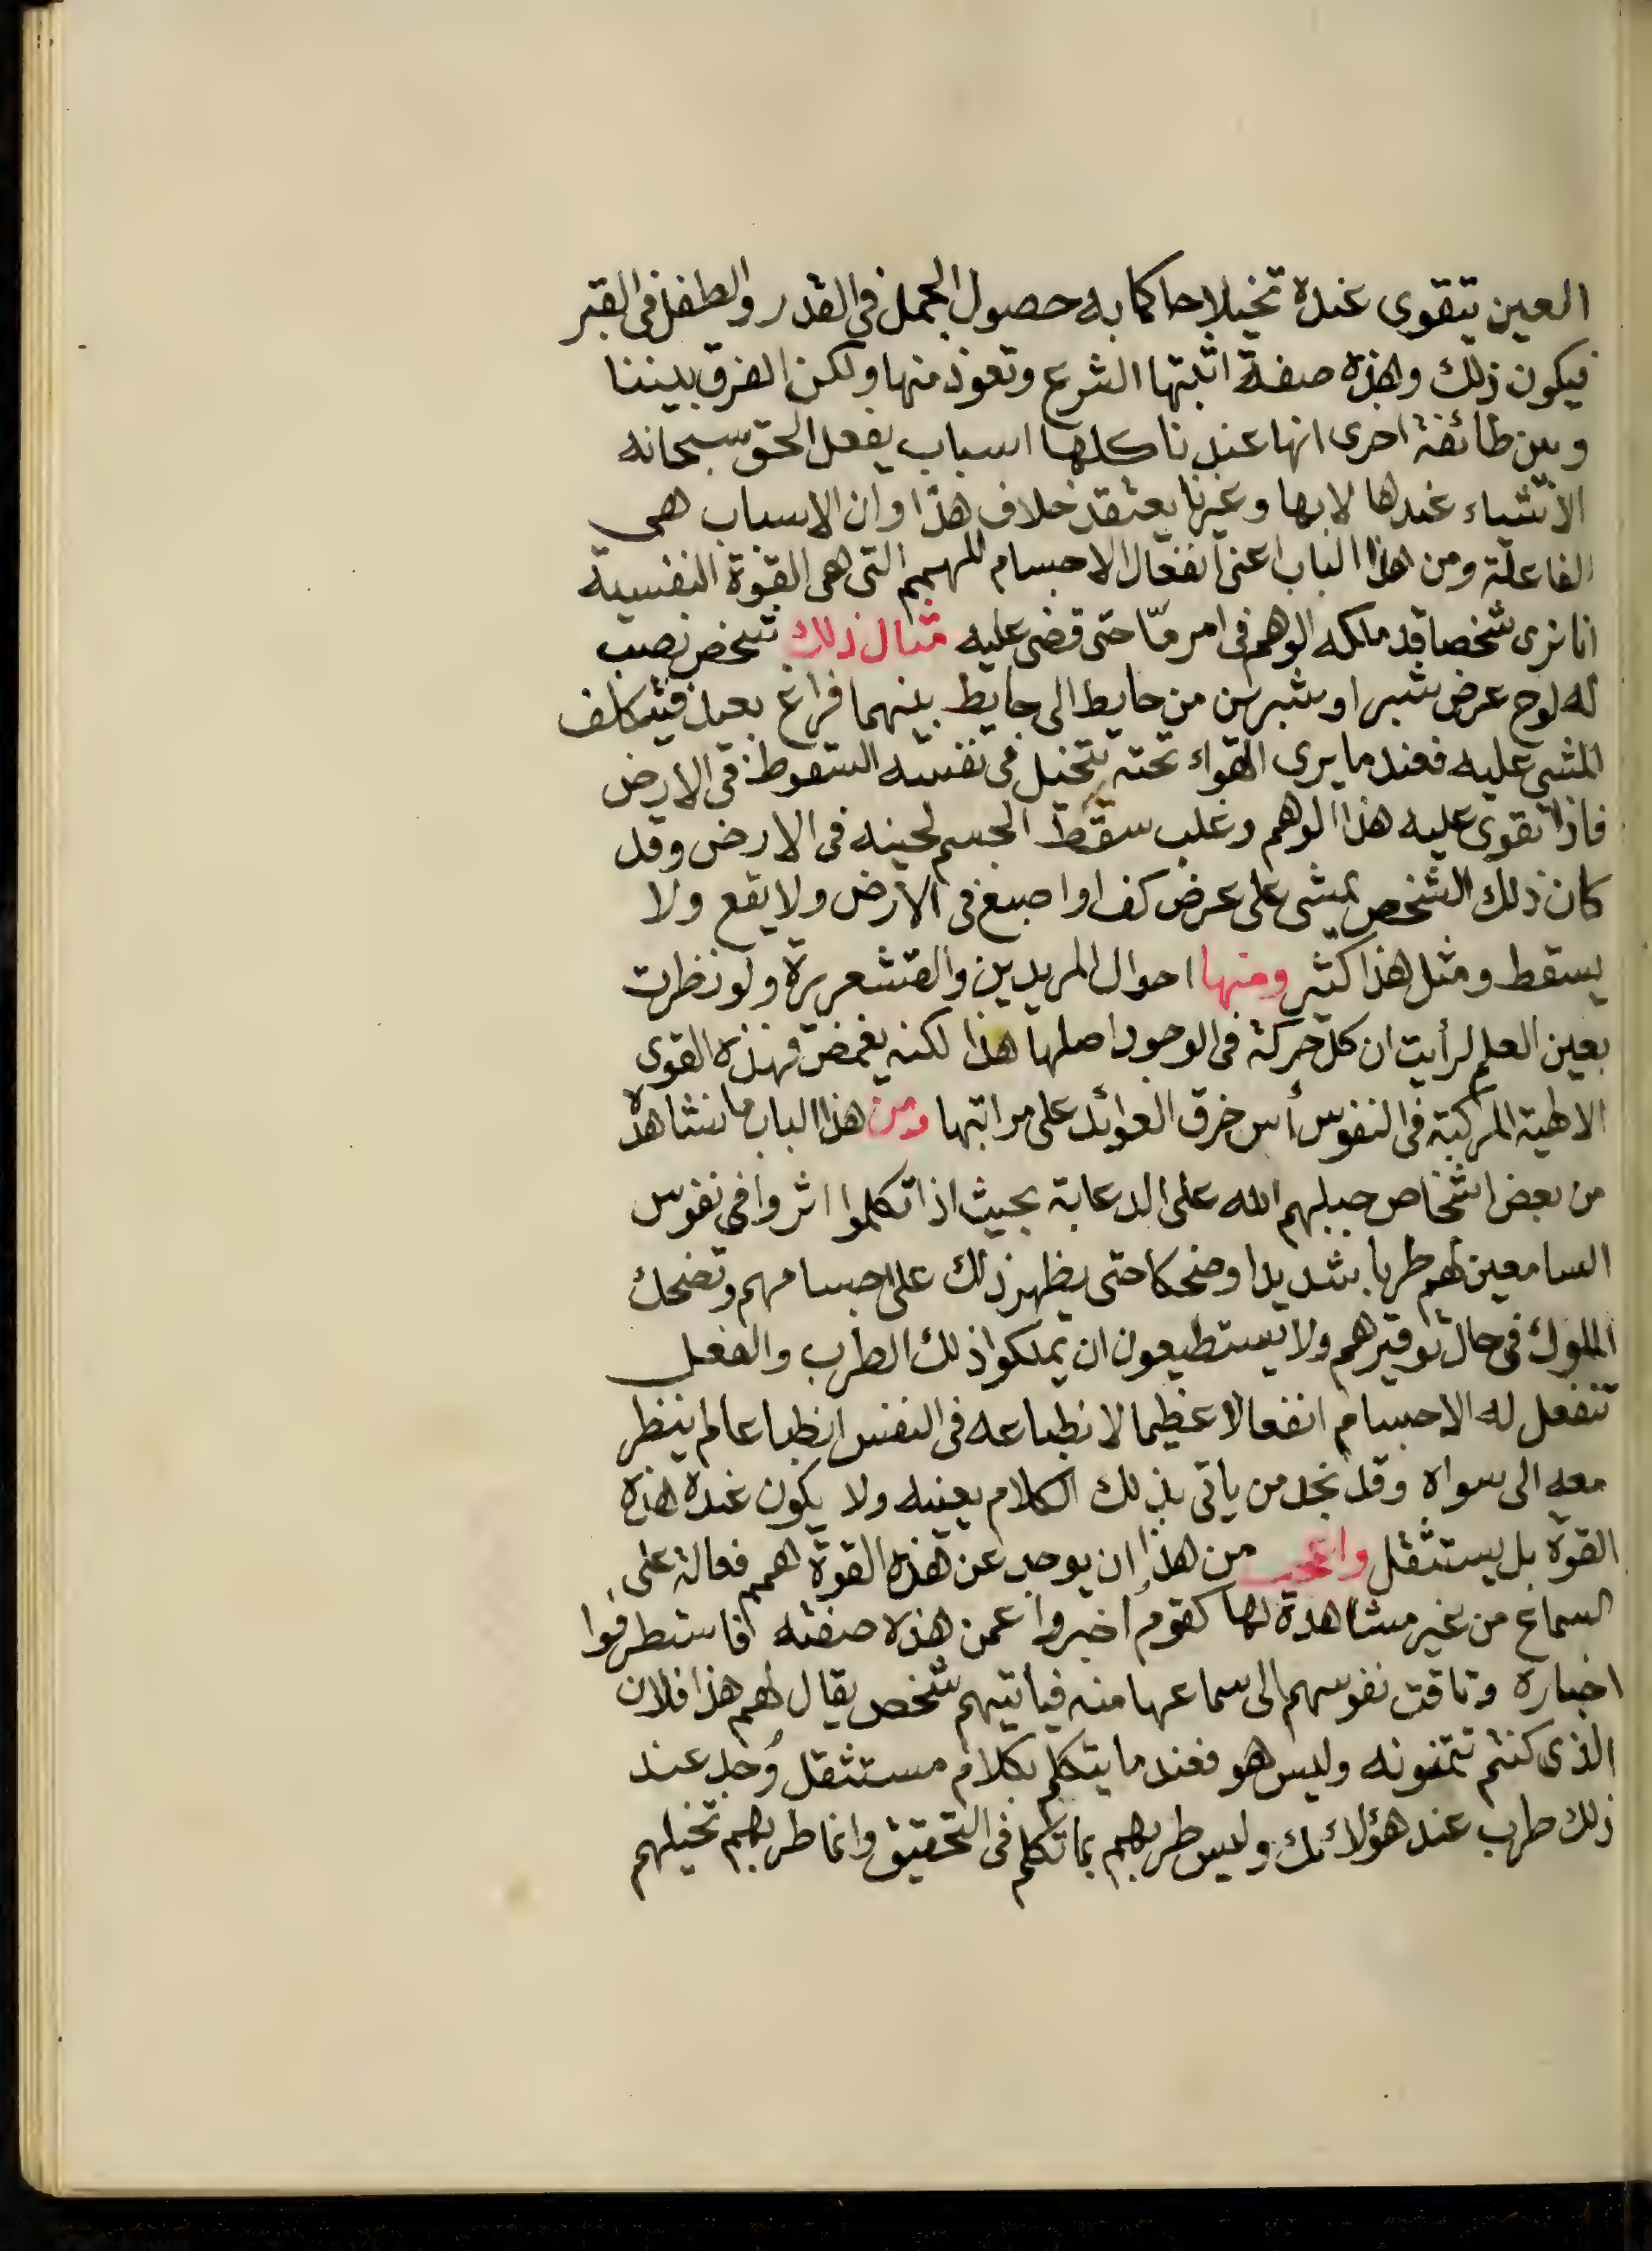 العين يتقوى عنده تخيلا حاكما به حصول الجمل في القدر والطفل في القبر
فيكون ذلك وهذه صفة اثبتها الشرع وتعوذ منها ولكن الفرق بيننا
وبين طائفة اخرى انها عندنا كلها اسباب يفعل الحق سبحانه
الاشياء عندها لا بها وغيرنا يعتقد خلاف هذا وان الاسباب هى
الفاعلة ومن هذا الباب اعنى انفعال الاجسام للهمم التى هى القوة النفسية
انا نرى شخصا قد ملكه الوهم فى امر مّا حتى قضى عليه مثال ذلك شخص نصب
له لوح عرض شبر او شبرين من حايط الى حايط بينهما فراغ بعيد فيتكلف
المشى عليه فعند ما يرى الهواء تحته يتخيل فى نفسه السقوط فى الارض
فاذا تقوى عليه هذا الوهم وغلب سقط الجسم لحينه فى الارض وقد
كان ذلك الشخص يمشى على عرض كف او اصبع فى الارض ولا يقع ولا
يسقط ومثل هذا كثير ومنها احوال المريدين والقشعريرة ولو نظرت
بعين العلم لرأيت ان كل حركة فى الوجود اصلها هذا لكنه يغمض فهذه القوى
الالهية المركبة فى النفوس أس خرق العوائد على مراتبها ومن هذا الباب ما نشاهده
من بعض اشخاص جبلهم الله على الدعابة بحيث اذا تكلموا اثروا فى نفوس
السامعين لهم طربا شديدا وضحكا حتى يظهر ذلك على اجسامهم وتضحك
الملوك فى حال توقيرهم ولا يستطيعون ان يملكوا ذلك الطرب والفعل
تنفعل له الاجسام انفعالا عظيما لانطباعه فى النفس انطباعا لم ينظر
معه الى سواه وقد نجد من ياتى بذلك الكلام بعينه ولا يكون عنده هذه
القوة بل يستثقل واعجب من هذا ان يوجد عن هذه القوة همم فعالة على
السماع من غير مشاهدة لها كقوم أخبروا عمن هذه صفته فاستطرفوا
اخباره وتاقت نفوسهم الى سماعها منه فياتيهم شخص يقال لهم هذا فلان
الذى كنتم تتمنونه وليس هو فعند ما يتكلم بكلام مستثقل وُجد عند
ذلك طرب عند هؤلائك وليس طربهم بما تكلم فى التحقيق وانما طربهم تخيلهم